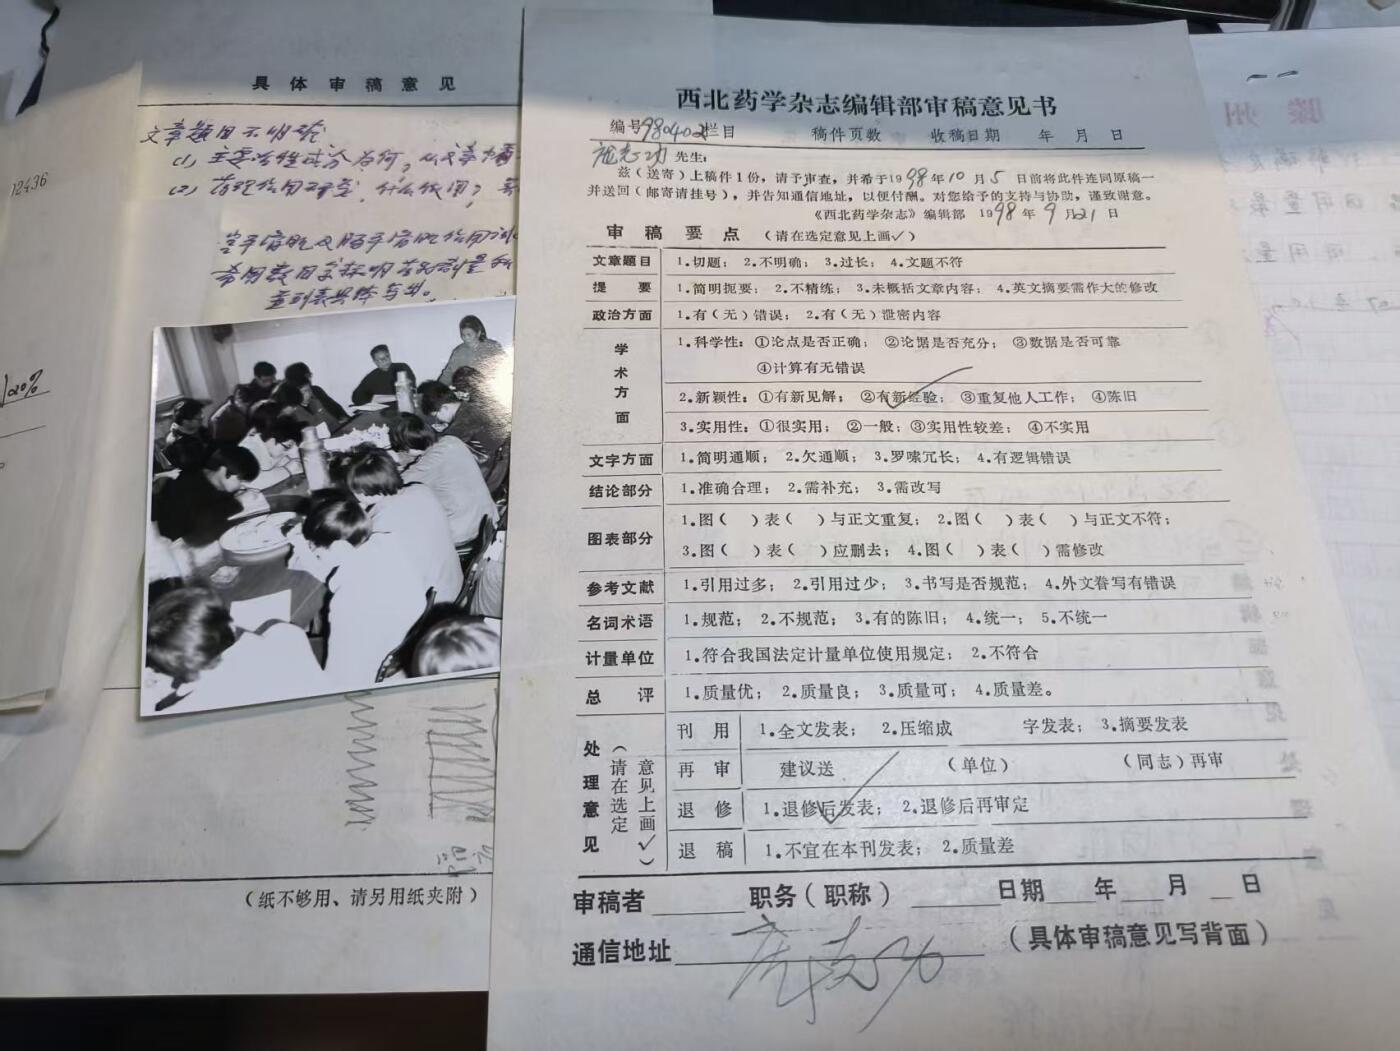 具体审稿意见
文章题目不明确
(1) 主要活性成分为何，从文章力看
(2) 药理作用
希用数目字标明药物剂量和
(纸不够用、请另用纸夹附)
02436
100%
西北药学杂志编辑部审稿意见书
编号980402栏目 稿件页数 收稿日期 年 月 日
庞志功先生：
兹(送寄)上稿件1份，请予审查，并希于1998年10月5日前将此件连同原稿一
并送回(邮寄请挂号)，并告知通信地址，以便付酬。对您给予的支持与协助，谨致谢意。
《西北药学杂志》编辑部 1998年9月21日
审稿要点 (请在选定意见上画✓)
文章题目 1.切题； 2.不明确； 3.过长； 4.文题不符
提要 1.简明扼要； 2.不精练； 3.未概括文章内容； 4.英文摘要需作大的修改
政治方面 1.有(无)错误； 2.有(无)泄密内容
学术方面 1.科学性：①论点是否正确； ②论据是否充分； ③数据是否可靠
④计算有无错误
2.新颖性：①有新见解； ②有新经验； ③重复他人工作； ④陈旧
3.实用性：①很实用； ②一般；③实用性较差； ④不实用
文字方面 1.简明通顺； 2.欠通顺； 3.罗嗦冗长； 4.有逻辑错误
结论部分 1.准确合理； 2.需补充； 3.需改写
图表部分 1.图( )表( )与正文重复； 2.图( )表( )与正文不符；
3.图( )表( )应删去； 4.图( )表( )需修改
参考文献 1.引用过多； 2.引用过少； 3.书写是否规范； 4.外文眷写有错误
名词术语 1.规范； 2.不规范； 3.有的陈旧； 4.统一； 5.不统一
计量单位 1.符合我国法定计量单位使用规定； 2.不符合
总评 1.质量优； 2.质量良； 3.质量可； 4.质量差。
处理意见(请在选定意见上画✓)
刊用 1.全文发表； 2.压缩成 字发表； 3.摘要发表
再审 建议送 (单位) (同志)再审
退修 1.退修后发表； 2.退修后再审定
退稿 1.不宜在本刊发表； 2.质量差
审稿者 职务(职称) 日期 年 月 日
通信地址 庞志功 (具体审稿意见写背面)